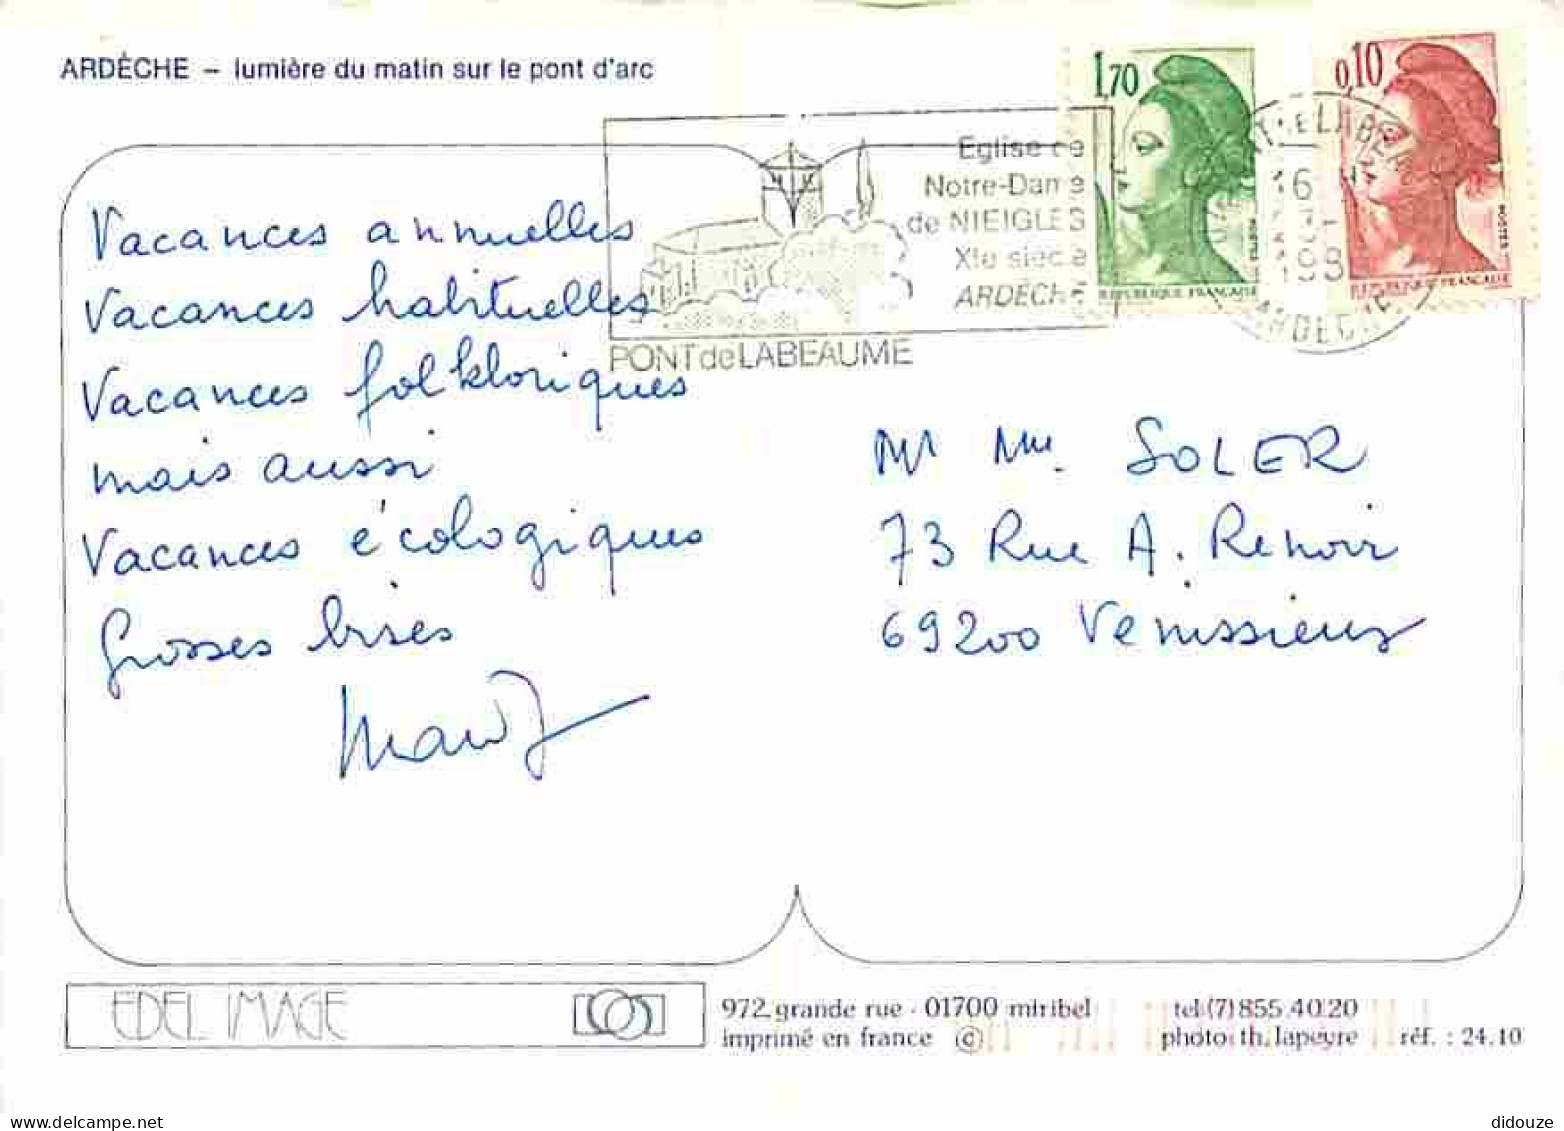 ARDÈCHE – lumière du matin sur le pont d'arc
1,70
0,10
Eglise de
Notre-Dame
de NIEIGLES
XIe siècle
ARDÈCHE
PONT de LABEAUME
16
198
ARDECHE
REPUBLIQUE FRANÇAISE
REPUBLIQUE FRANÇAISE
POSTES
Vacances annuelles
Vacances habituelles
Vacances folkloriques
mais aussi
Vacances écologiques
Grosses bises
Mr Mme. SOLER
73 Rue A. Renoir
69200 Vénissieux
EDEL IMAGE
972, grande rue - 01700 miribel
imprimé en france ©
tel (7) 855.40.20
photo th. lapeyre
réf. : 24.10
didouze